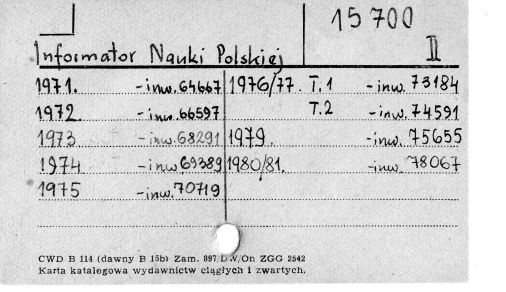 15 700
Informator Nauki Polskiej II
1971. -inw. 64667 1976/77. T.1 -inw. 73184
1972. -inw. 66597 T.2 -inw. 74591
1973 -inw. 68291 1979. -inw. 75655
1974 -inw. 69389 1980/81. -inw. 78067
1975 -inw. 70719
CWD B 114 (dawny B 15b) Zam. 897/DW/On ZGG 2542
Karta katalogowa wydawnictw ciągłych i zwartych.